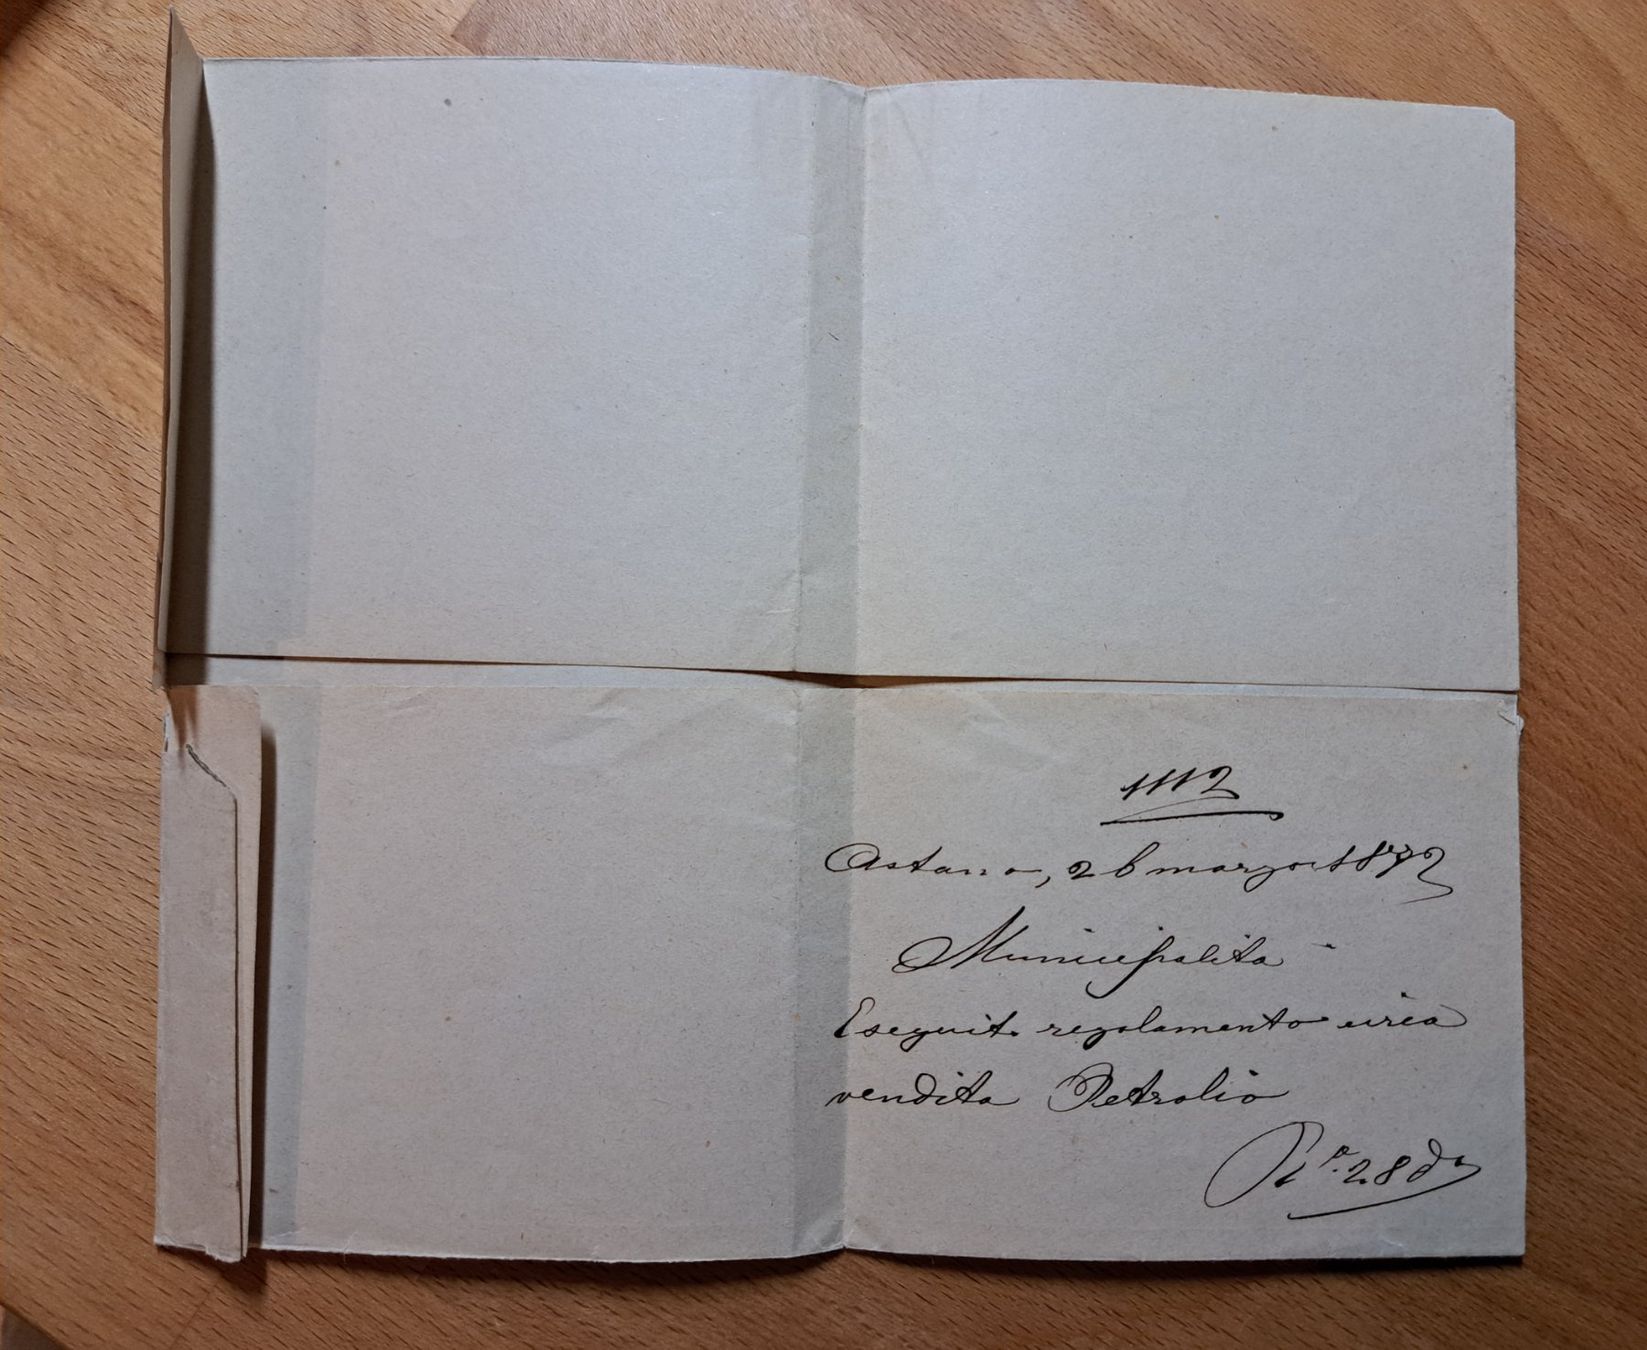 1112
Astano, 26 marzo 1872
Municipalita
Eseguit. regolamento circa
vendita Petrolio
28 d.